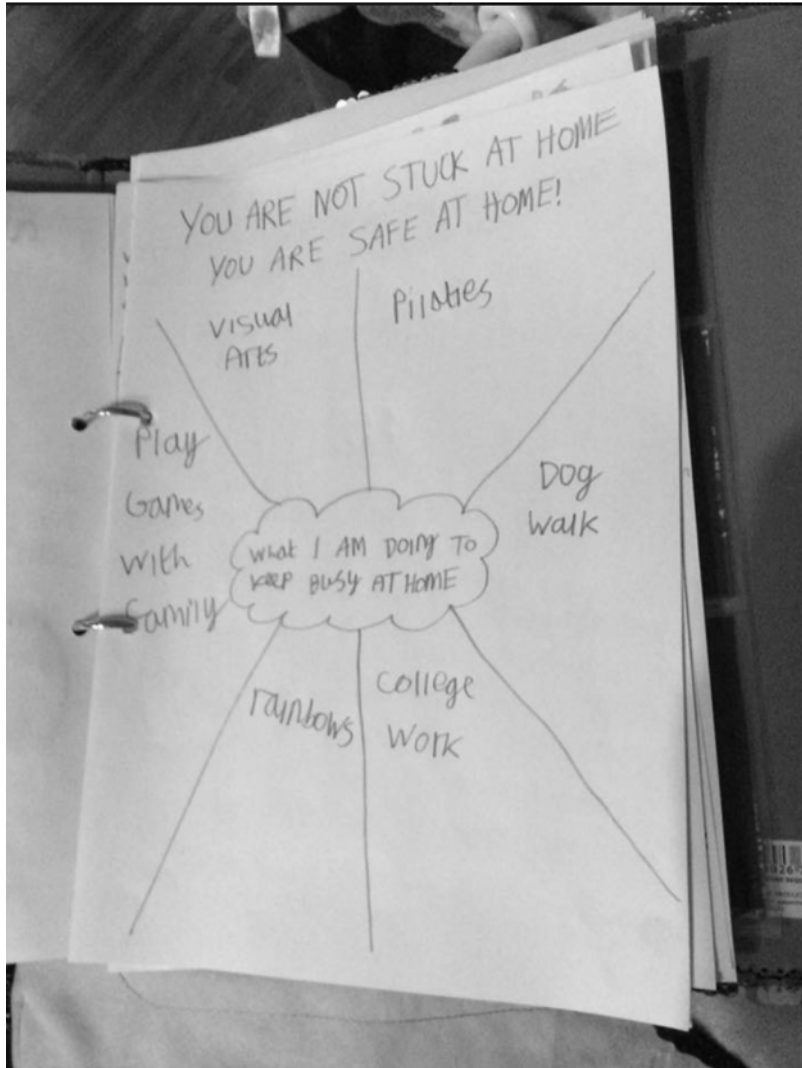 YOU ARE NOT STUCK AT HOME
YOU ARE SAFE AT HOME!
Visual
Arts
Pilaties
Play
Games
With
Family
Dog
Walk
What I AM DOING TO
KEEP BUSY AT HOME
rainbows
College
Work